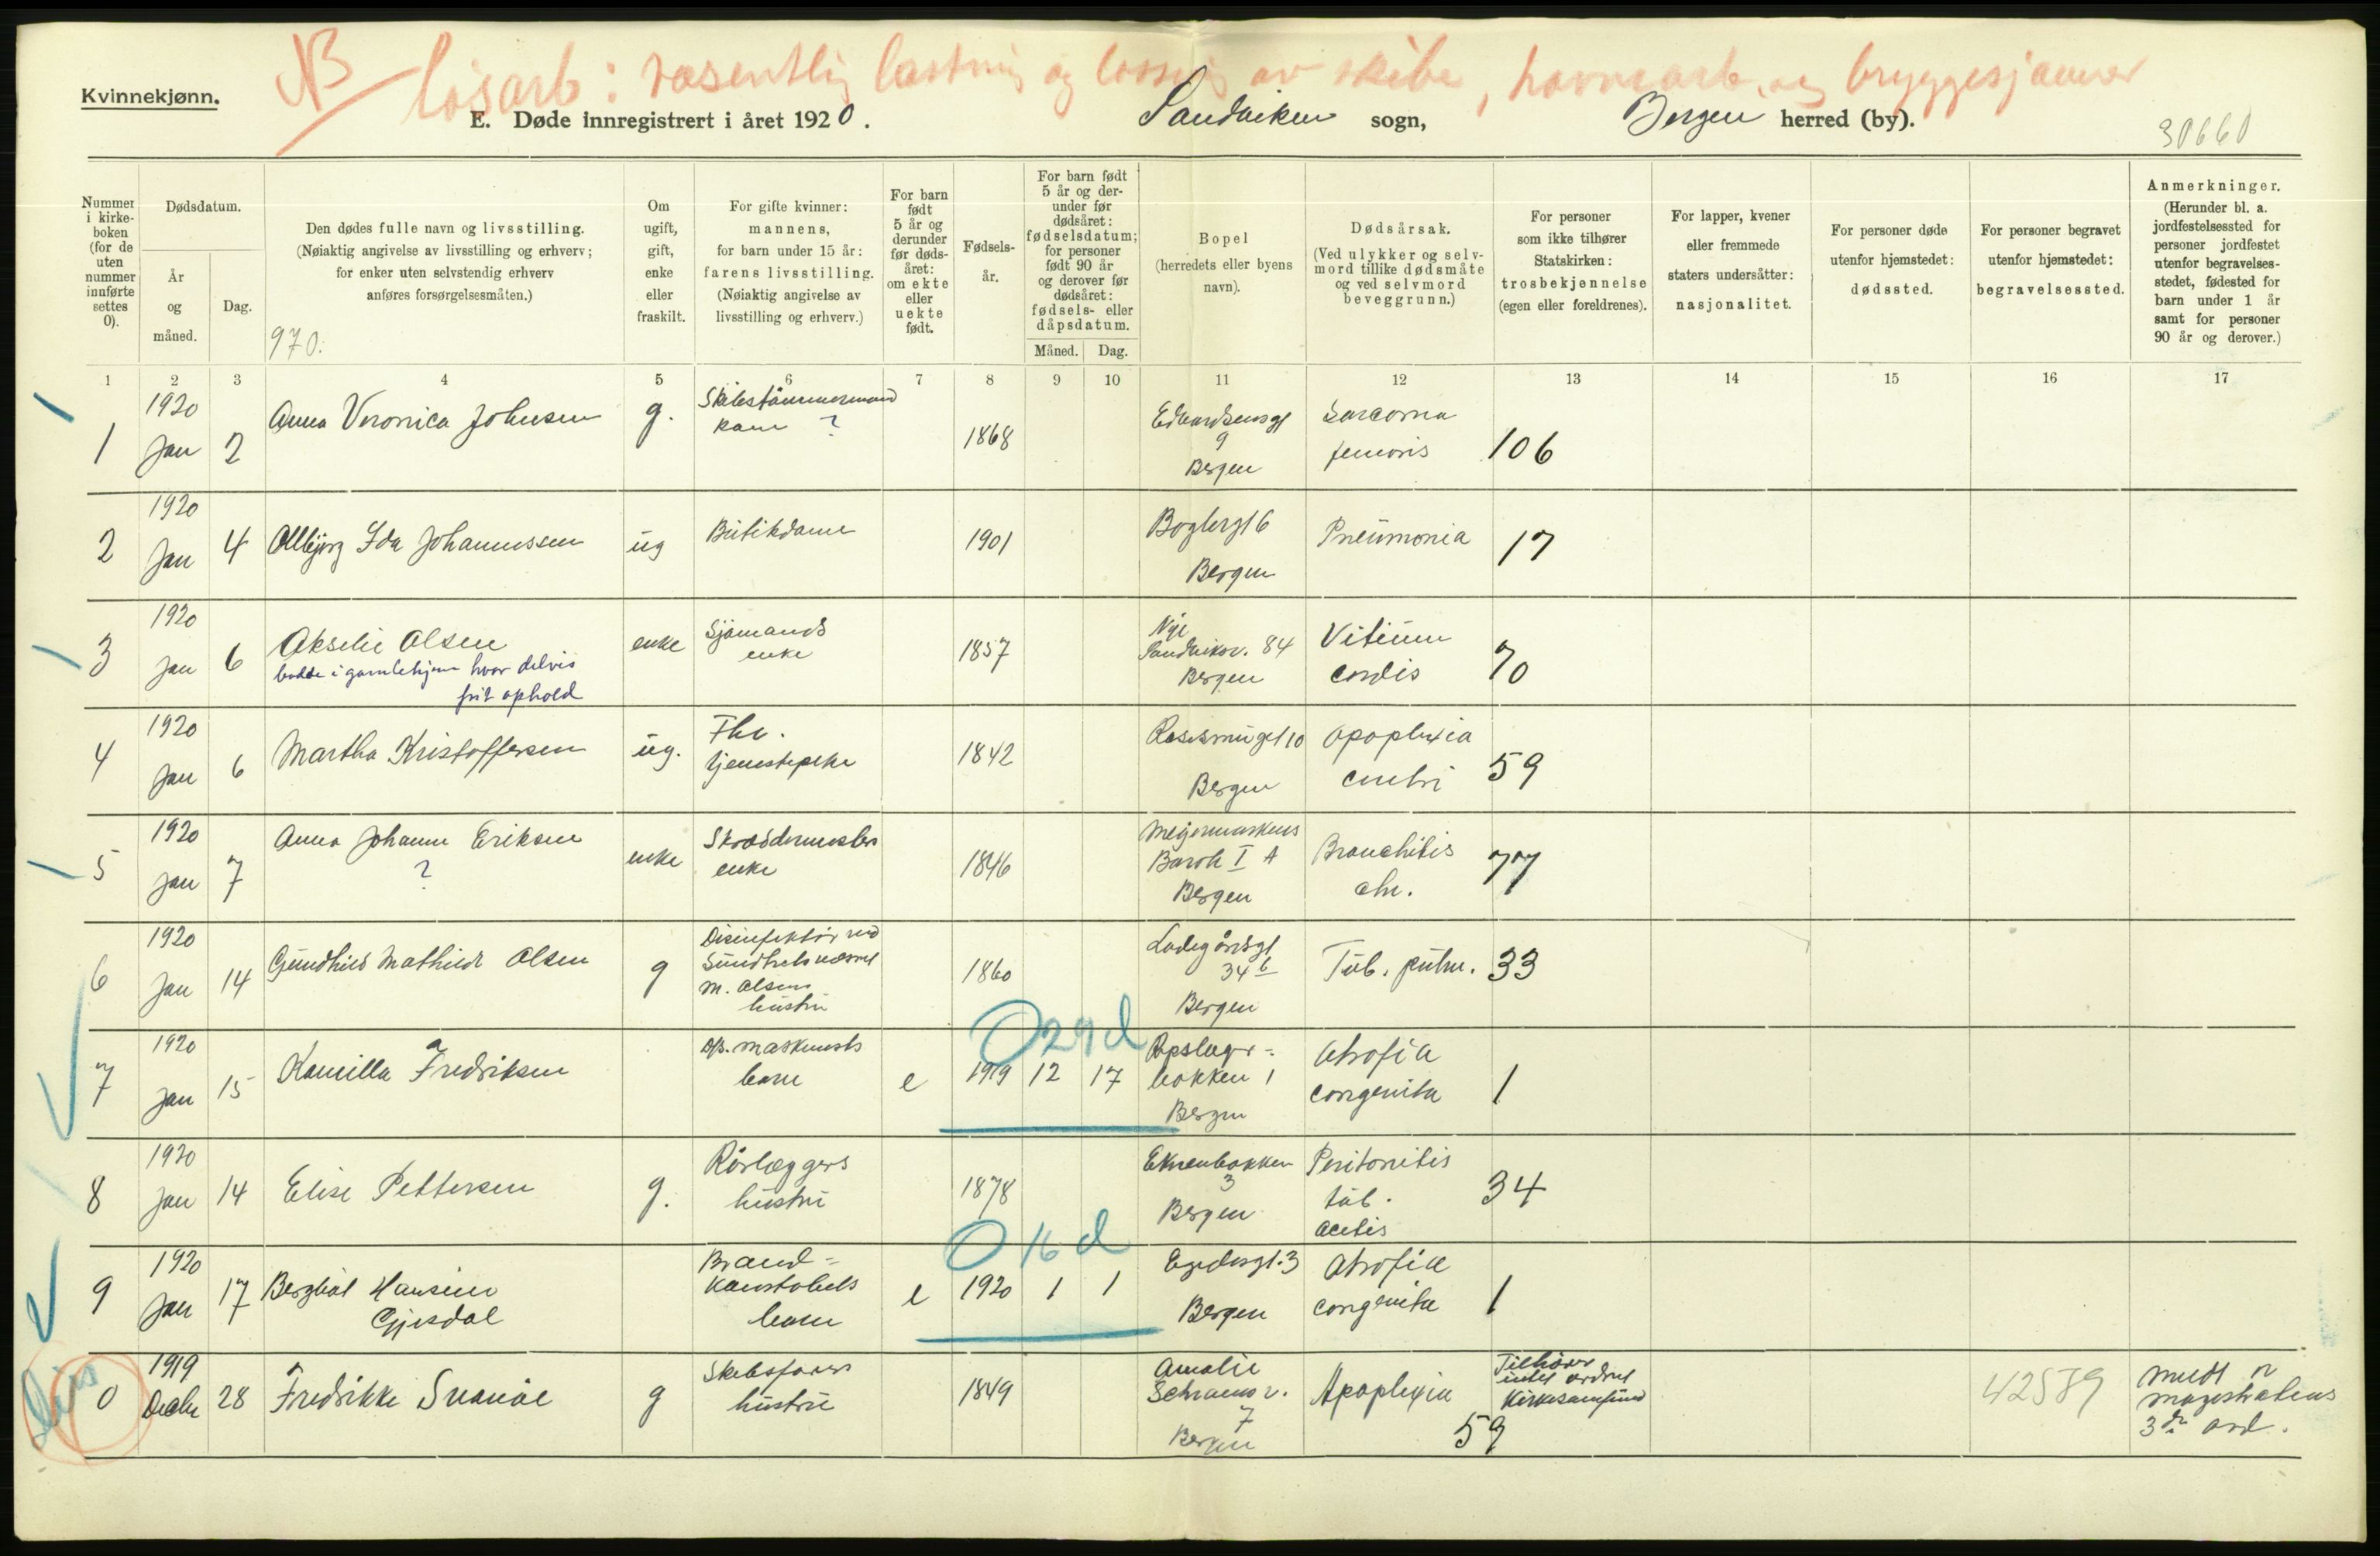 NB
løsarb: væsentlig lastning og lossing av skibe, havnearb. og bryggesjauer
Kvinnekjønn.
E. Døde innregistrert i året 1920. Sandviken sogn, Bergen herred (by).
30660
Nummer i kirkeboken (for de uten nummer innførte settes 0).
Dødsdatum.
År og måned.
Dag.
Den dødes fulle navn og livsstilling.
(Nøiaktig angivelse av livsstilling og erhverv;
for enker uten selvstendig erhverv
anføres forsørgelsesmåten.)
970.
Om ugift, gift, enke eller fraskilt.
For gifte kvinner: mannens, for barn under 15 år: farens livsstilling. (Nøiaktig angivelse av livsstilling og erhverv.)
For barn født 5 år og derunder før dødsåret: om ekte eller uekte født.
Fødselsår.
For barn født 5 år og derunder før dødsåret: fødselsdatum; for personer født 90 år og derover før dødsåret: fødsels- eller dåpsdatum.
Måned. Dag.
Bopel (herredets eller byens navn).
Dødsårsak. (Ved ulykker og selvmord tillike dødsmåte og ved selvmord beveggrunn.)
For personer som ikke tilhører Statskirken: trosbekjennelse (egen eller foreldrenes).
For lapper, kvener eller fremmede staters undersåtter: nasjonalitet.
For personer døde utenfor hjemstedet: dødssted.
For personer begravet utenfor hjemstedet: begravelsessted.
Anmerkninger. (Herunder bl. a. jordfestelsessted for personer jordfestet utenfor begravelsesstedet, fødested for barn under 1 år samt for personer 90 år og derover.)
1 2 3 4 5 6 7 8 9 10 11 12 13 14 15 16 17
1 1920 Jan 2 Anna Veronica Johnsen g. Skibstømmermand kone ? 1868 Edvardsensgt 9 Bergen Sarcoma femoris 106
2 1920 Jan 4 Ida Johannessen ug Butikdame 1901 6 Bergen Pneumonia 17
3 1920 Jan 6 Akselie Olsen enke Sjömands enke 1857 Nye Sandviksv. 84 Bergen Vitium cordis 70
bodde i gamlehjem hvor delvis
frit ophold
4 1920 Jan 6 Martha Kristoffersen ug. Fhv. tjenestepike 1842 10 Bergen Apoplexia cerebri 59
5 1920 Jan 7 Anna Johanne Eriksen ? enke Skræddermesters enke 1846 Barak I A Bergen Bronchitis chr. 77
6 1920 Jan 14 Gundhild Mathilde Olsen g Disinfektör ved Sundhetsvæsnet M. Olsens hustru 1860 Ladegårdsgt 34 b Bergen Tub. pulm. 33
7 1920 Jan 15 Kamilla Fredriksen maskinists barn e 1919 12 17 Repslager-bakken 1 Bergen Atrofia congenita 1
0 29 d
8 1920 Jan 14 Elise Pettersen g. Rörlæggers hustru 1878 Ekrenbakken 3 Bergen Peritonitis tub. 34
0 16 d
9 1920 Jan 17 Bergliot Hansine Gjesdal Brand-konstabels barn e 1920 1 1 Egedesgt. 3 Bergen Atrofia congenita 1
0 1919 Decbr 28 Fredrikke Svanöe g Skibsförers hustru 1849 Amalie Schramsv. 7 Bergen Apoplexia 59 Tilhörer intet ordnet Kirkesamfund 42589 Meldt magistratens 3die avd.